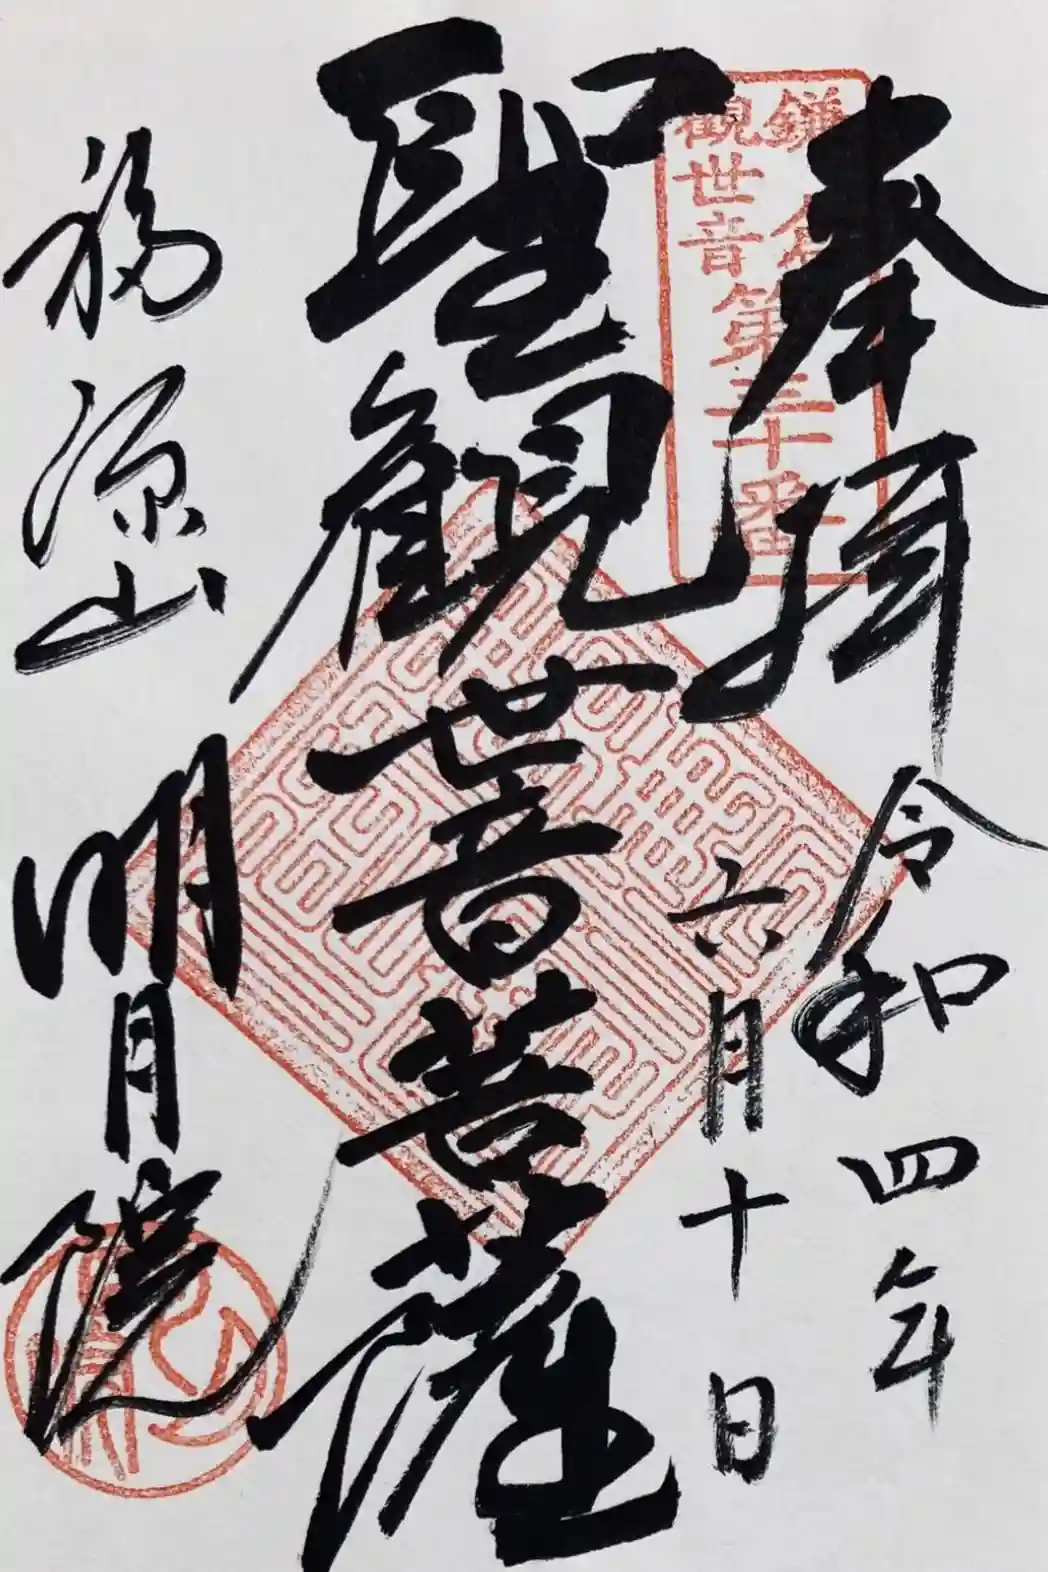 奉拝
令和四年
六月十日
鎌倉
観世音第三十番
聖観世音菩薩
福源山
明月院